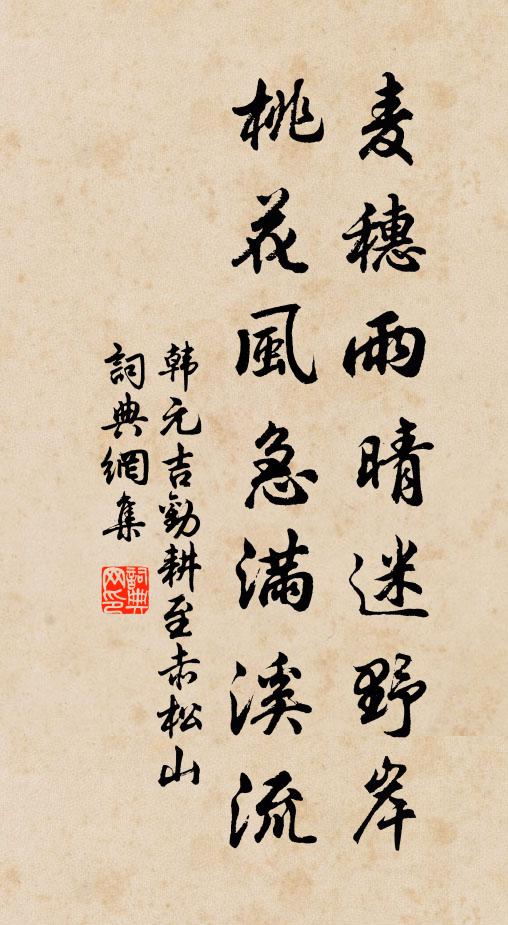 麦穗雨晴迷野岸
桃花風急滿溪流
韩元吉勸耕至赤松山
詞典網集
詞典
网印